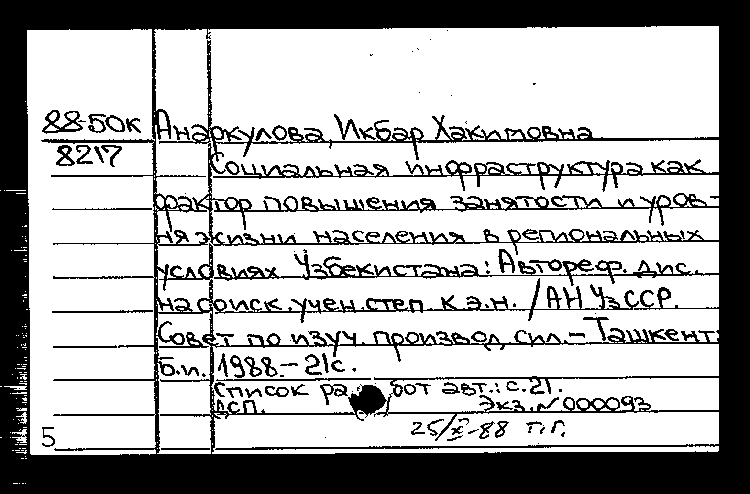 88-50к Анаркулова, Икбар Хакимовна
8217 Социальная инфраструктура как
фактор повышения занятости и уров-
ня жизни населения в региональных
условиях Узбекистана: Автореф. дис.
на соиск. учен. степ. к.э.н. /АН УзССР.
Совет по изуч. производ. сил. – Ташкент:
Б.и. 1988 – 21с.
Список работ авт.: с.21.
ДСП. Экз. № 000093
25/X-88 п.г.
5